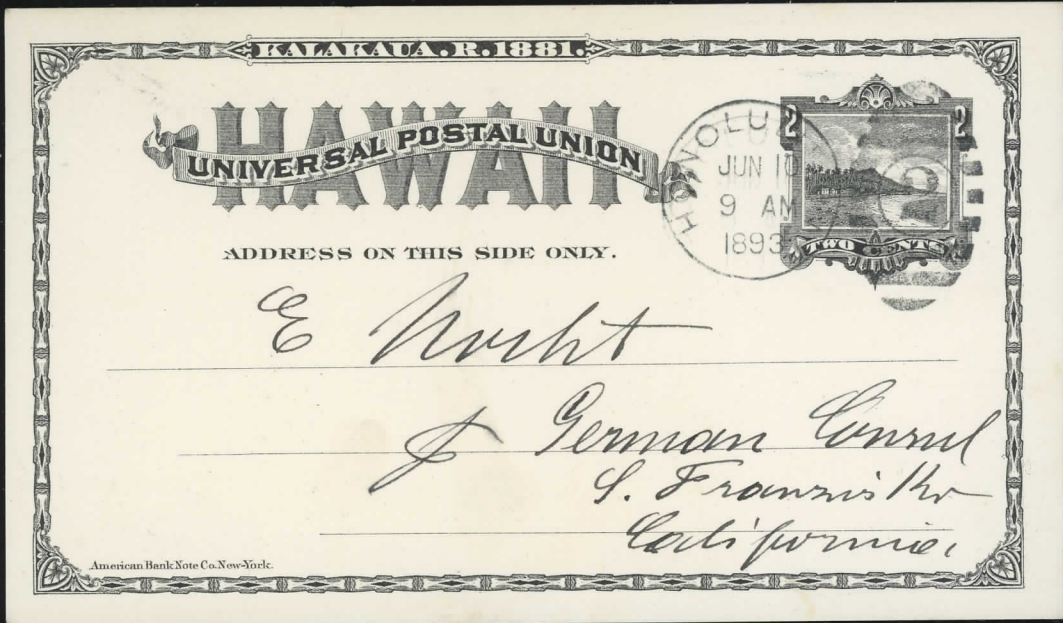 KALAKAUA. R. 1881.
HAWAII
UNIVERSAL POSTAL UNION
HONOLU
JUN 10
9 AM
1893
2 2
TWO CENTS
ADDRESS ON THIS SIDE ONLY.
E
German Consul
S. Franzisko
California
American Bank Note Co. New-York.